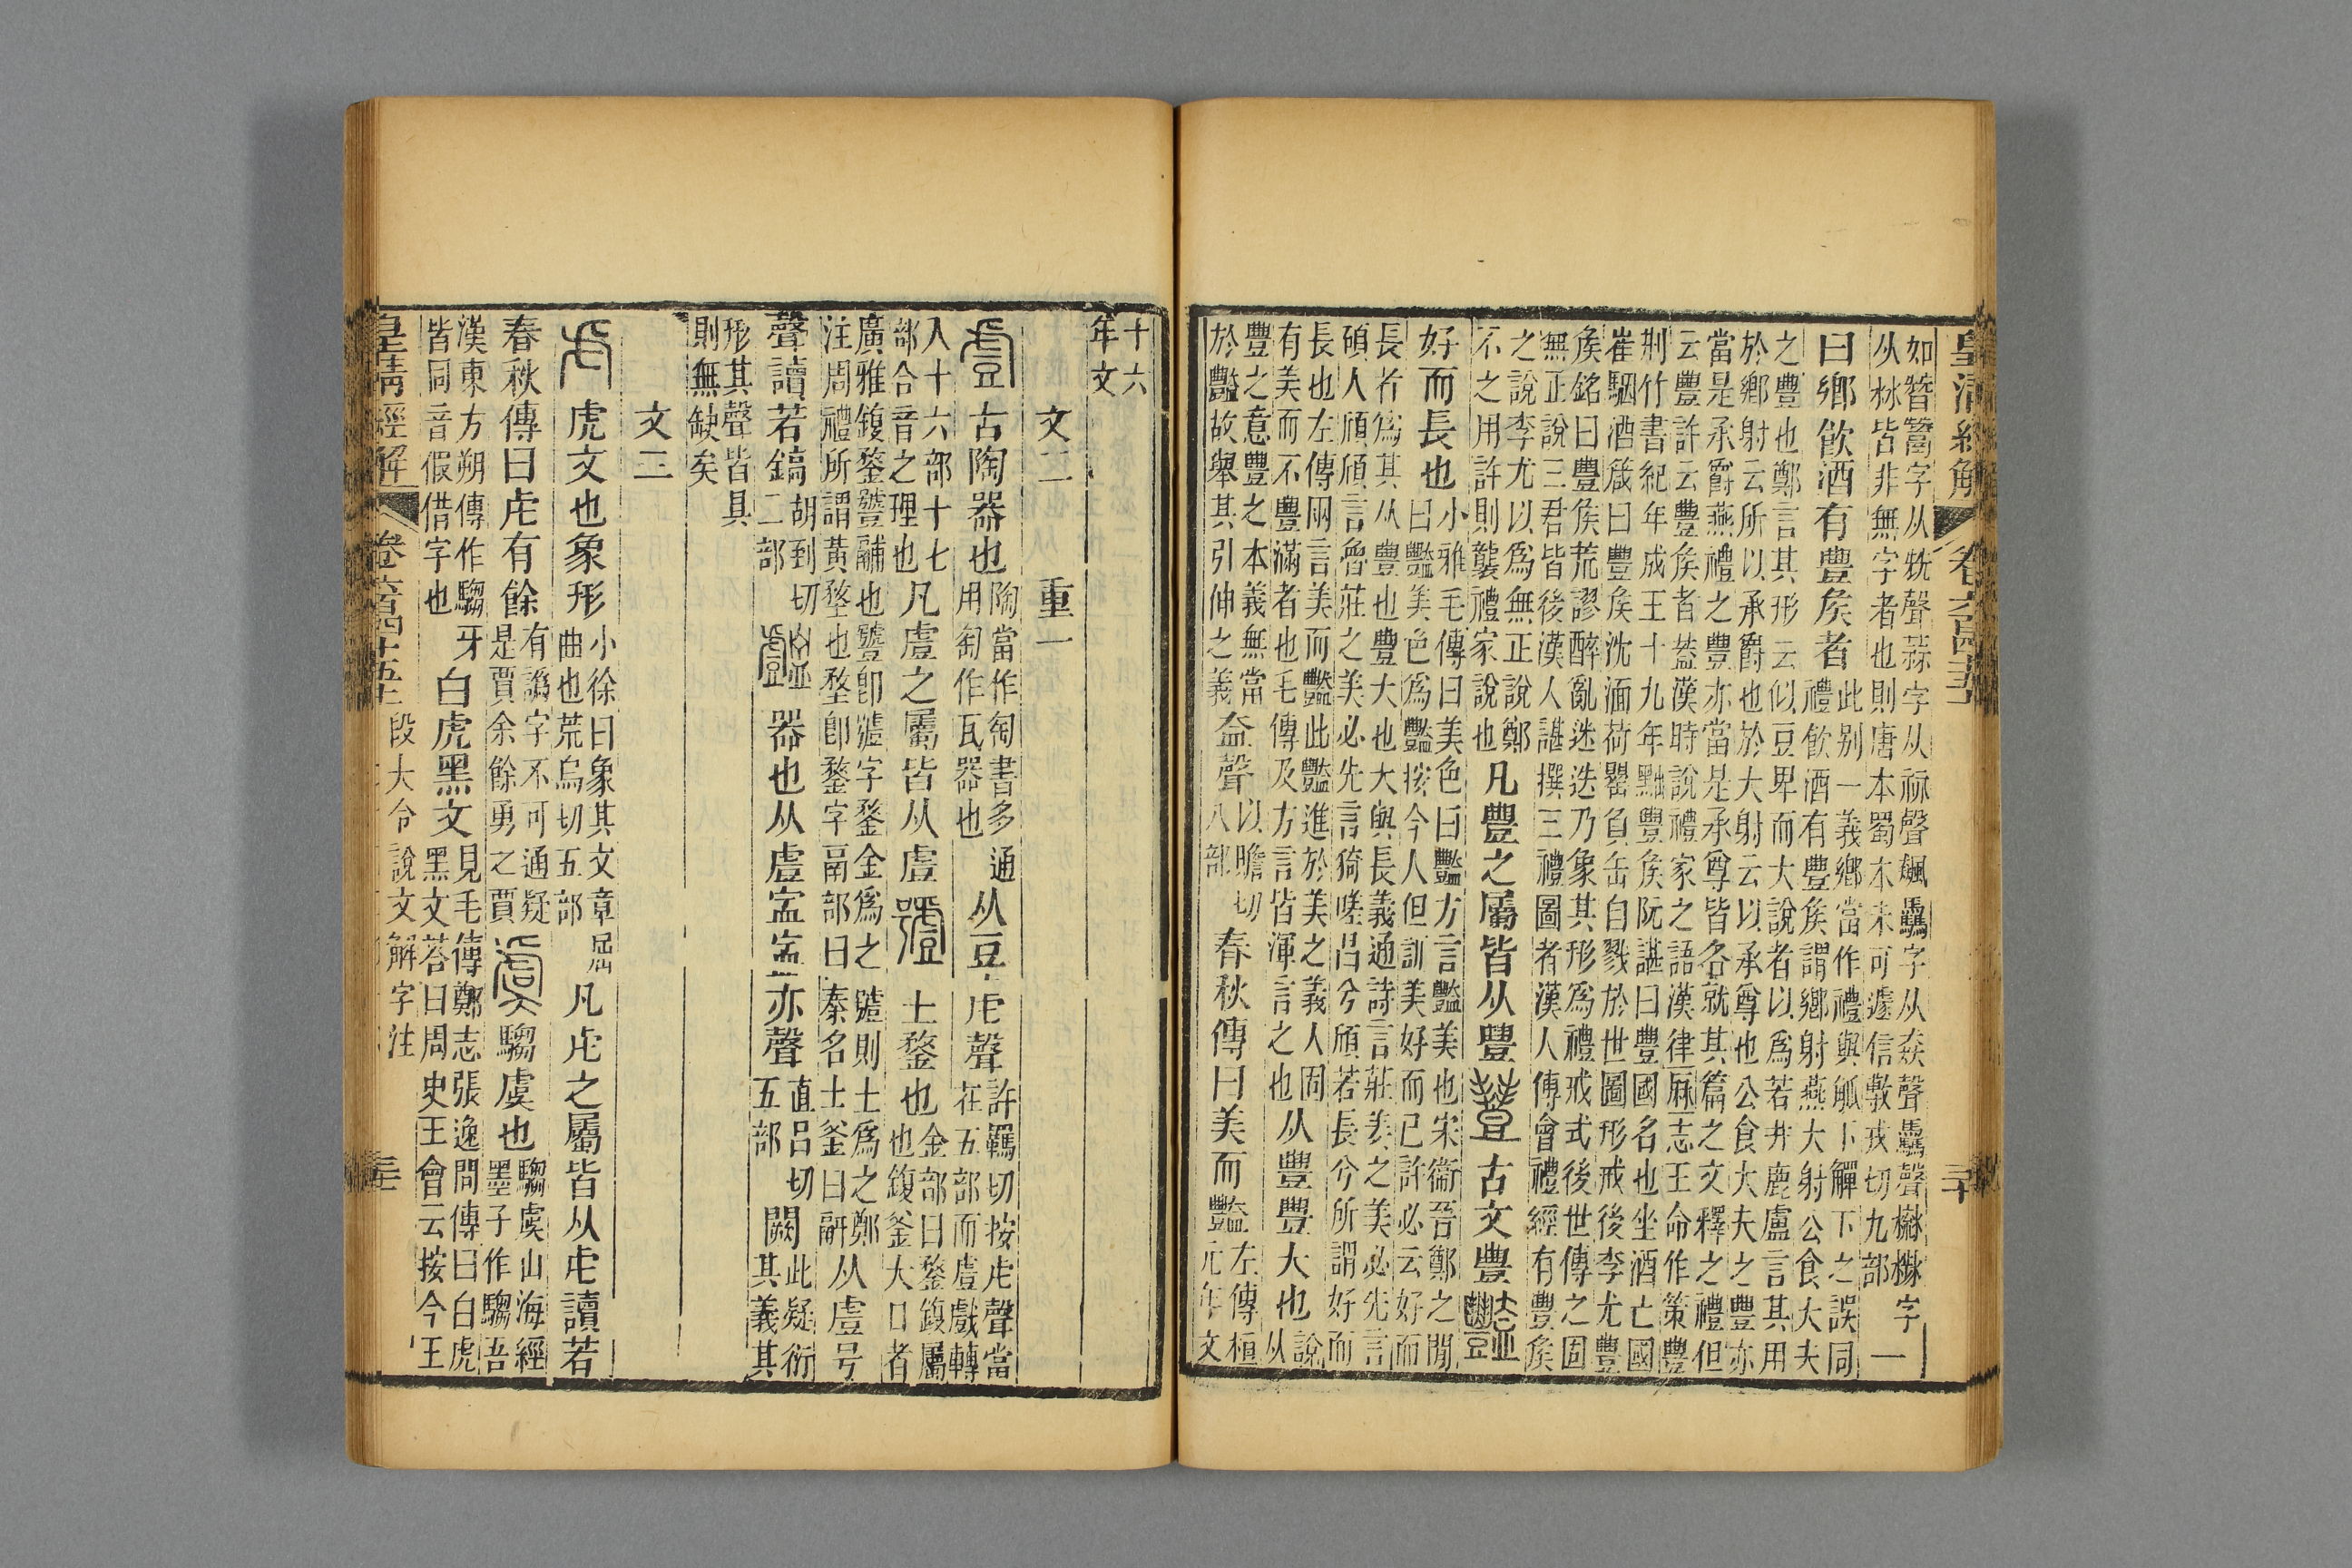 皇清經解 卷六百四十五
如簪簪字从兟聲蒜字从祘聲飊驫字从猋聲驫聲櫯櫯字一
从林皆非無字者也則唐本蜀本未可遽信敷戎切九部
曰鄉飲酒有豐矦者
此别一義鄉當作禮與觚下觶下之誤同
禮飲酒有豐矦謂鄉射燕大射公食大夫
之豐也鄭言其形云似豆卑而大說者以爲若井鹿盧言其用
於鄉射云所以承爵也於大射云以承尊也公食大夫之豐亦
當是承爵燕禮之豐亦當是承尊皆各就其篇之文釋之禮但
云豐許云豐矦者葢漢時說禮家之語漢律麻志王命作策豐
荆竹書紀年成王十九年黜豐矦阮諶曰豐國名也坐酒亡國
崔駰酒箴曰豐矦沈湎荷罌負缶自戮於世圖形戒後李尤豐
矦銘曰豐矦荒謬醉亂迷迭乃象其形爲禮戒式後世傳之固
無正說三君皆後漢人諶撰三禮圖者漢人傅會禮經有豐矦
之說李尤以爲無正說鄭
不之用許則襲禮家說也
凡豐之屬皆从豐
古文豐
好而長也
小雅毛傳曰美色曰豔方言豔美也宋衞晉鄭之閒
曰豔美色爲豔按今人但訓美好而已許必云好而
長者爲其从豐也豐大也大與長義通詩言莊姜之美必先言
碩人頎頎言魯莊之美必先言猗嗟昌兮頎若長兮所謂好而
長也左傳兩言美而豔此豔進於美之義人固
有美而不豐滿者也毛傳及方言皆渾言之也
从豐豐大也
說从
豐之意豐之本義無當
於豔故舉其引伸之義
盇聲
以贍切
八部
春秋傳曰美而豔
左傳桓
元年文
十六
年文
文二 重一
古陶器也
陶當作匋書多通
用匋作瓦器也
从豆虍聲
許羈切按虍聲當
在五部而䖒戲轉
入十六部十七
部合音之理也
凡䖒之屬皆从䖒
土鍪也
金部曰鍪鍑屬
也鍑釜大口者
廣雅鍑鍪䚃鬴也䚃卽㙈字鍪金爲之㙈則士爲之鄭
注周禮所謂黃堥也堥卽鍪字鬲部曰秦名土釜曰䰛
从䖒号
聲讀若鎬
胡到切
二部
器也从䖒𥁄𥁄亦聲
直呂切
五部
闕
此疑衍
其義其
形其聲皆具
則無缺矣
文三
虎文也象形
小徐曰象其文章屈
曲也荒烏切五部
凡虍之屬皆从虍讀若
春秋傳曰虍有餘
有譌字不可通疑
是賈余餘勇之賈
騶虞也
騶虞山海經
墨子作騶吾
漢東方朔傳作騶牙
皆同音假借字也
白虎黑文
見毛傳鄭志張逸問傳曰白虎
黑文荅曰周史王會云按今王
皇清經解 卷六百四十五 段大令說文解字注